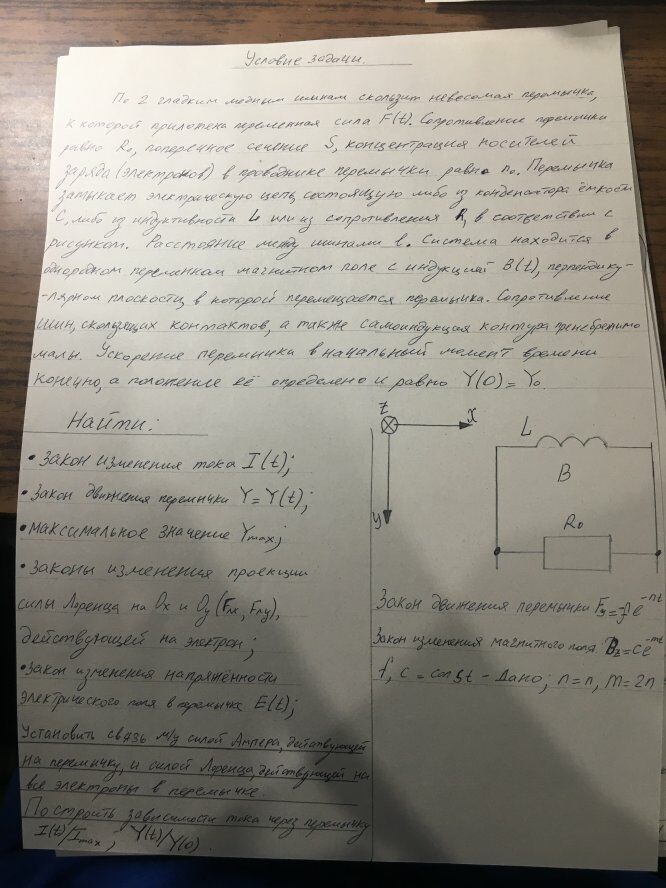 Условие задачи.
По 2 гладким медным шинам скользит невесомая перемычка,
к которой приложена переменная сила F(t). Сопротивление перемычки
равно R₀, поперечное сечение S, концентрация носителей
заряда (электронов) в проводнике перемычки равно n₀. Перемычка
замыкает электрическую цепь, состоящую либо из конденсатора ёмкости
C, либо из индуктивности L или из сопротивления R, в соответствии с
рисунком. Расстояние между шинами l. Система находится в
однородном переменном магнитном поле с индукцией B(t), перпендику-
-лярном плоскости, в которой перемещается перемычка. Сопротивление
шин, скользящих контактов, а также самоиндукция контура пренебрежимо
малы. Ускорение перемычки в начальный момент времени
конечно, а положение её определено и равно Y(0) = Y₀.
Найти:
• Закон изменения тока I(t);
• Закон движения перемычки Y = Y(t);
• Максимальное значение Ymax;
• Законы изменения проекции
силы Лоренца на Ox и Oy (Fлx, Fлy),
действующей на электрон;
• Закон изменения напряжённости
электрического поля в перемычке E(t);
Установить связь м/у силой Ампера, действующей
на перемычку, и силой Лоренца, действующей на
все электроны в перемычке.
Построить зависимости тока через перемычку
I(t)/Imax, Y(t)/Y(0).
Z
X
Y
L
B
R₀
Закон движения перемычки Fy = fe^-nt
Закон изменения магнитного поля Bz = ce^-mt
f, c = const - дано; n = n, m = 2n